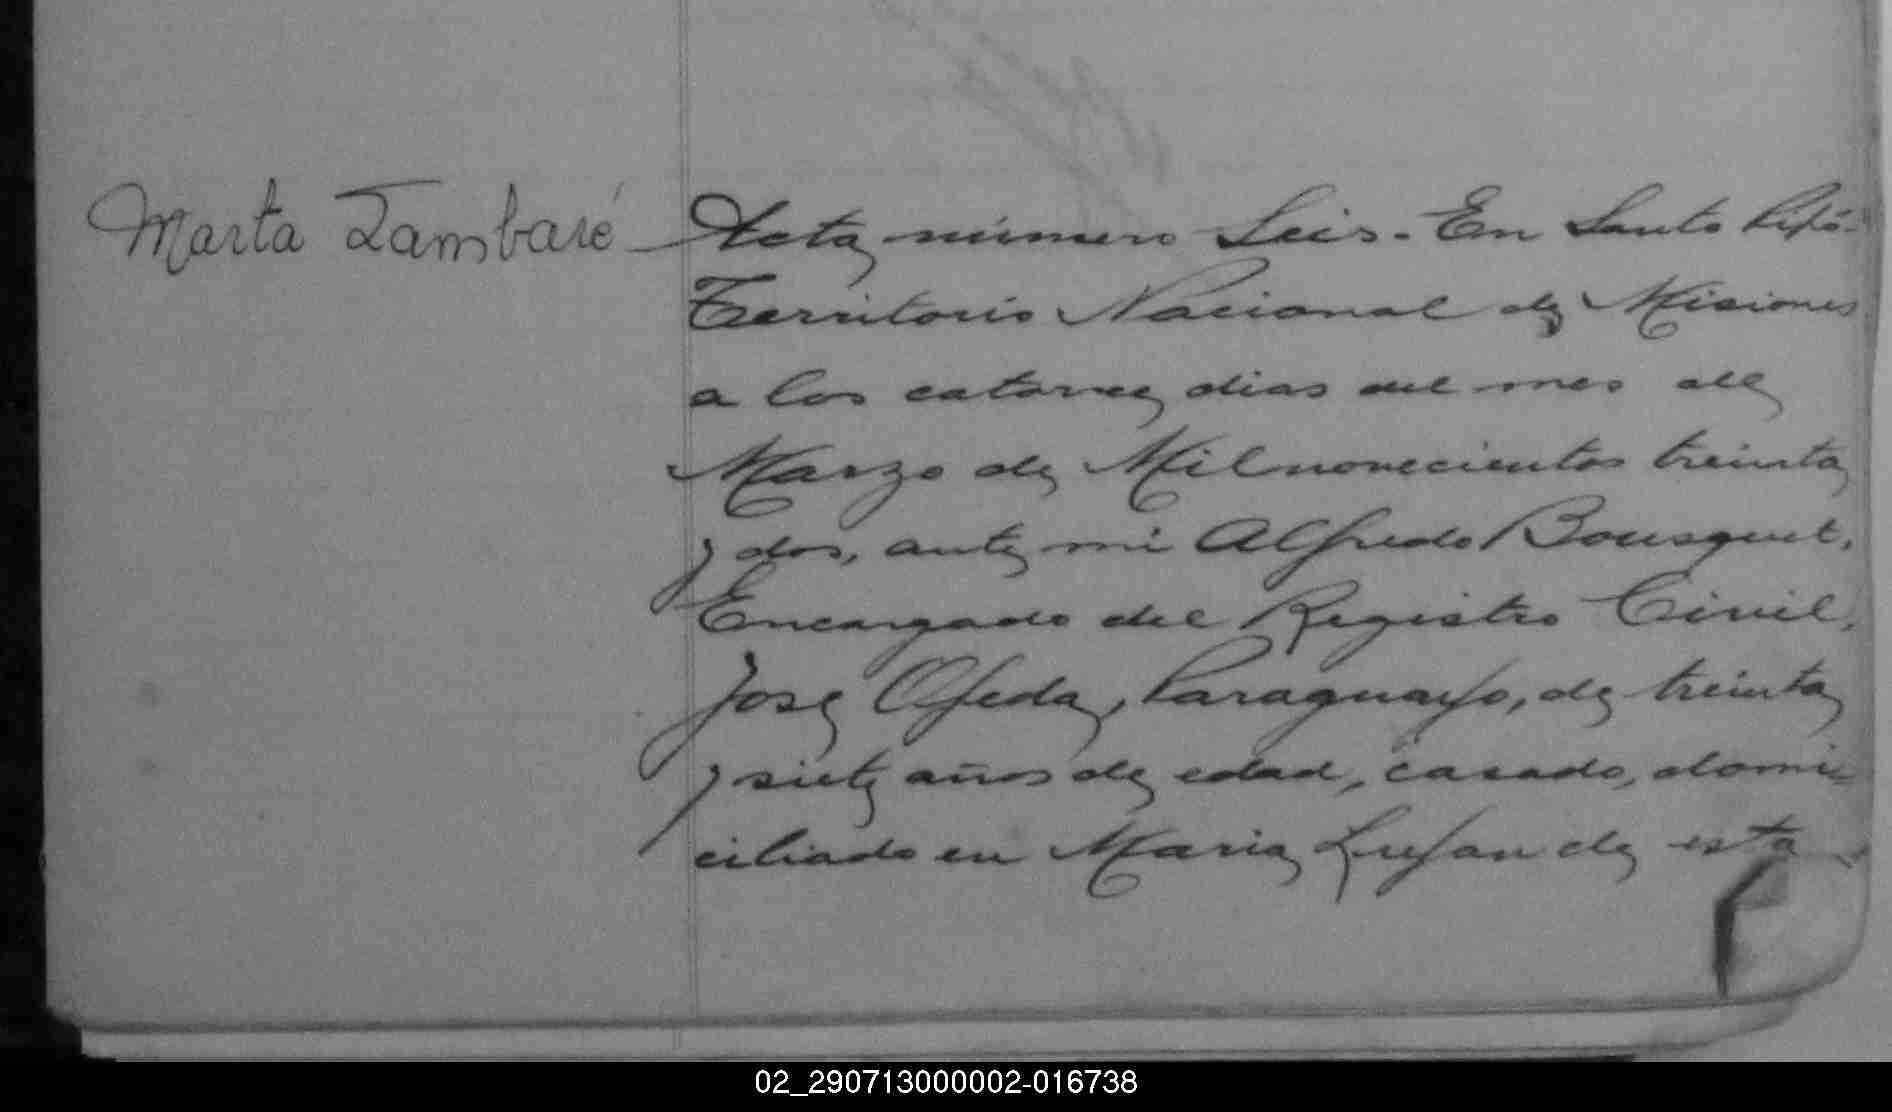 Marta Zambaré
Acta número Seis.- En Santo Pipó-
Territorio Nacional de Misiones
a los catorce dias del mes de
Marzo de Mil novecientos treinta
y dos, ante mi Alfredo Bousquet,
Encargado del Registro Civil,
Jose Ojeda, Paraguayo, de treinta
y siete años de edad, casado, domi-
ciliado en Maria Lujan de esta
02_290713000002-016738